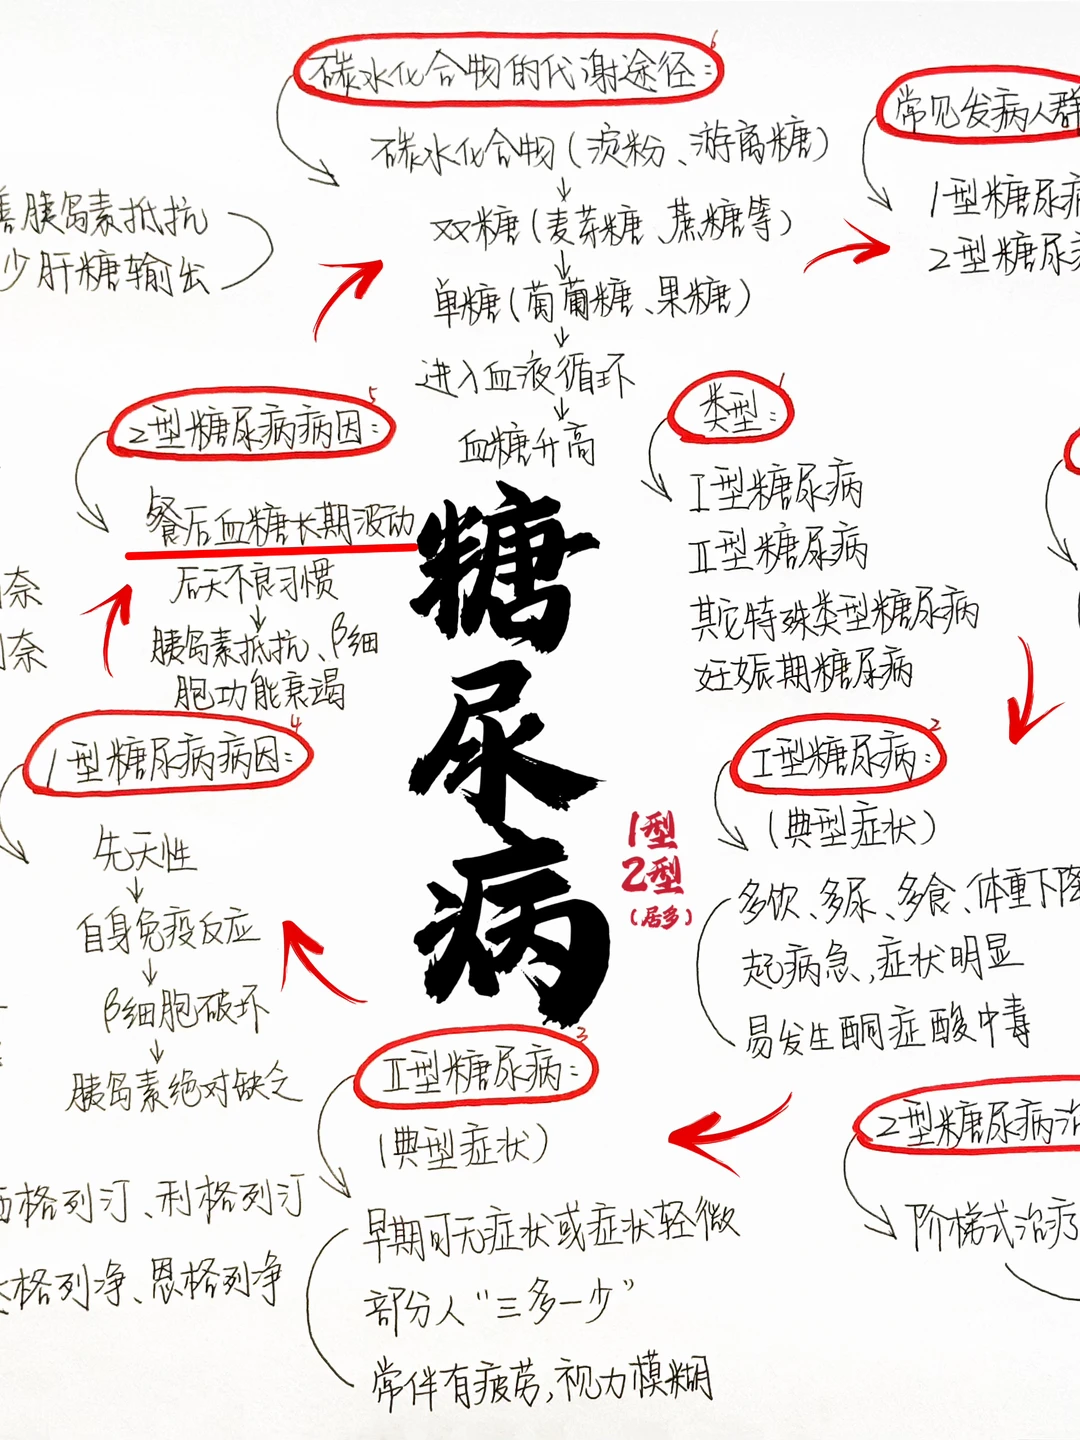 碳水化合物的代谢途径：
6
碳水化合物（淀粉、游离糖）
双糖（麦芽糖、蔗糖等）
单糖（葡萄糖、果糖）
进入血液循环
血糖升高
常见发病人群
1型糖尿病
2型糖尿病
善胰岛素抵抗
少肝糖输出
2型糖尿病病因：
5
餐后血糖长期波动
后天不良习惯
胰岛素抵抗、β细
胞功能衰竭
类型：
1
I型糖尿病
II型糖尿病
其它特殊类型糖尿病
妊娠期糖尿病
糖
尿
病
1型
2型
（居多）
列奈
列奈
1型糖尿病病因：
4
先天性
自身免疫反应
β细胞破坏
胰岛素绝对缺乏
I型糖尿病：
2
（典型症状）
多饮、多尿、多食、体重下降
起病急、症状明显
易发生酮症酸中毒
II型糖尿病：
3
（典型症状）
早期可无症状或症状轻微
部分人“三多一少”
常伴有疲劳，视力模糊
2型糖尿病治
阶梯式治疗
西格列汀、利格列汀
格列净、恩格列净